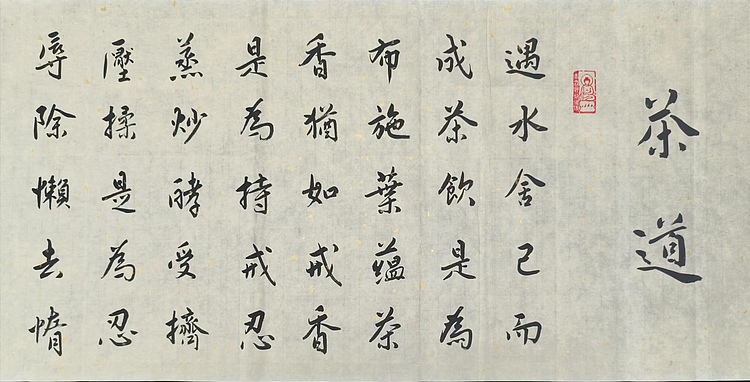 茶道
遇水舍己而
成茶飲是為
布施葉蘊茶
香猶如戒香
是為持戒忍
蒸炒酵受擠
壓揉是為忍
辱除懶去惰